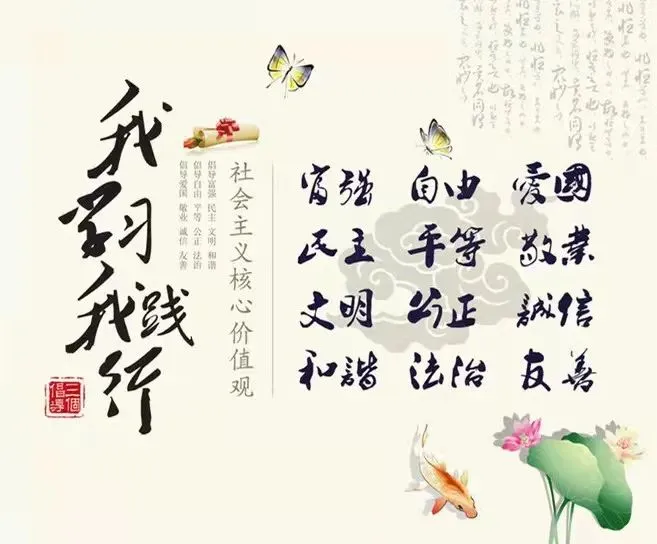 我学习
我践行
三個倡导
倡导富强 民主 文明 和谐
倡导自由 平等 公正 法治
倡导爱国 敬业 诚信 友善
社会主义核心价值观
富强 自由 愛國
民主 平等 敬業
文明 公正 誠信
和諧 法治 友善